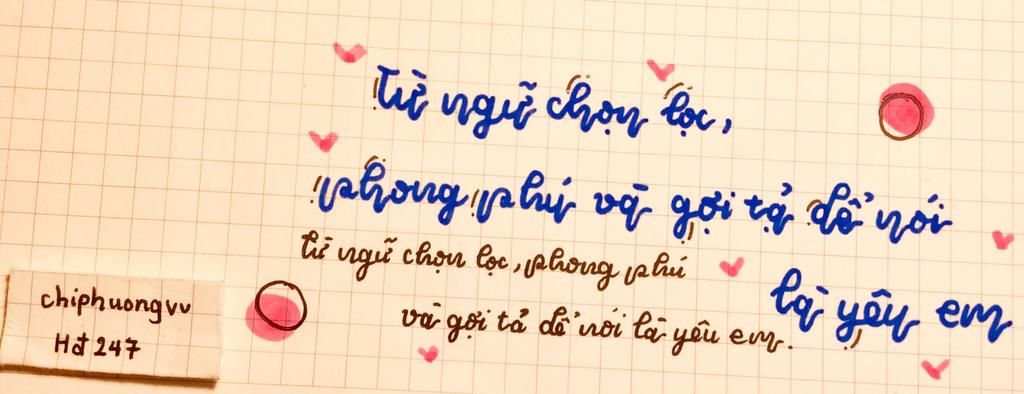 từ ngữ chọn lọc,
phong phú và gợi tả để nói
là yêu em
từ ngữ chọn lọc, phong phú
và gợi tả để nói là yêu em.
chiphuongvv
Hđ 247